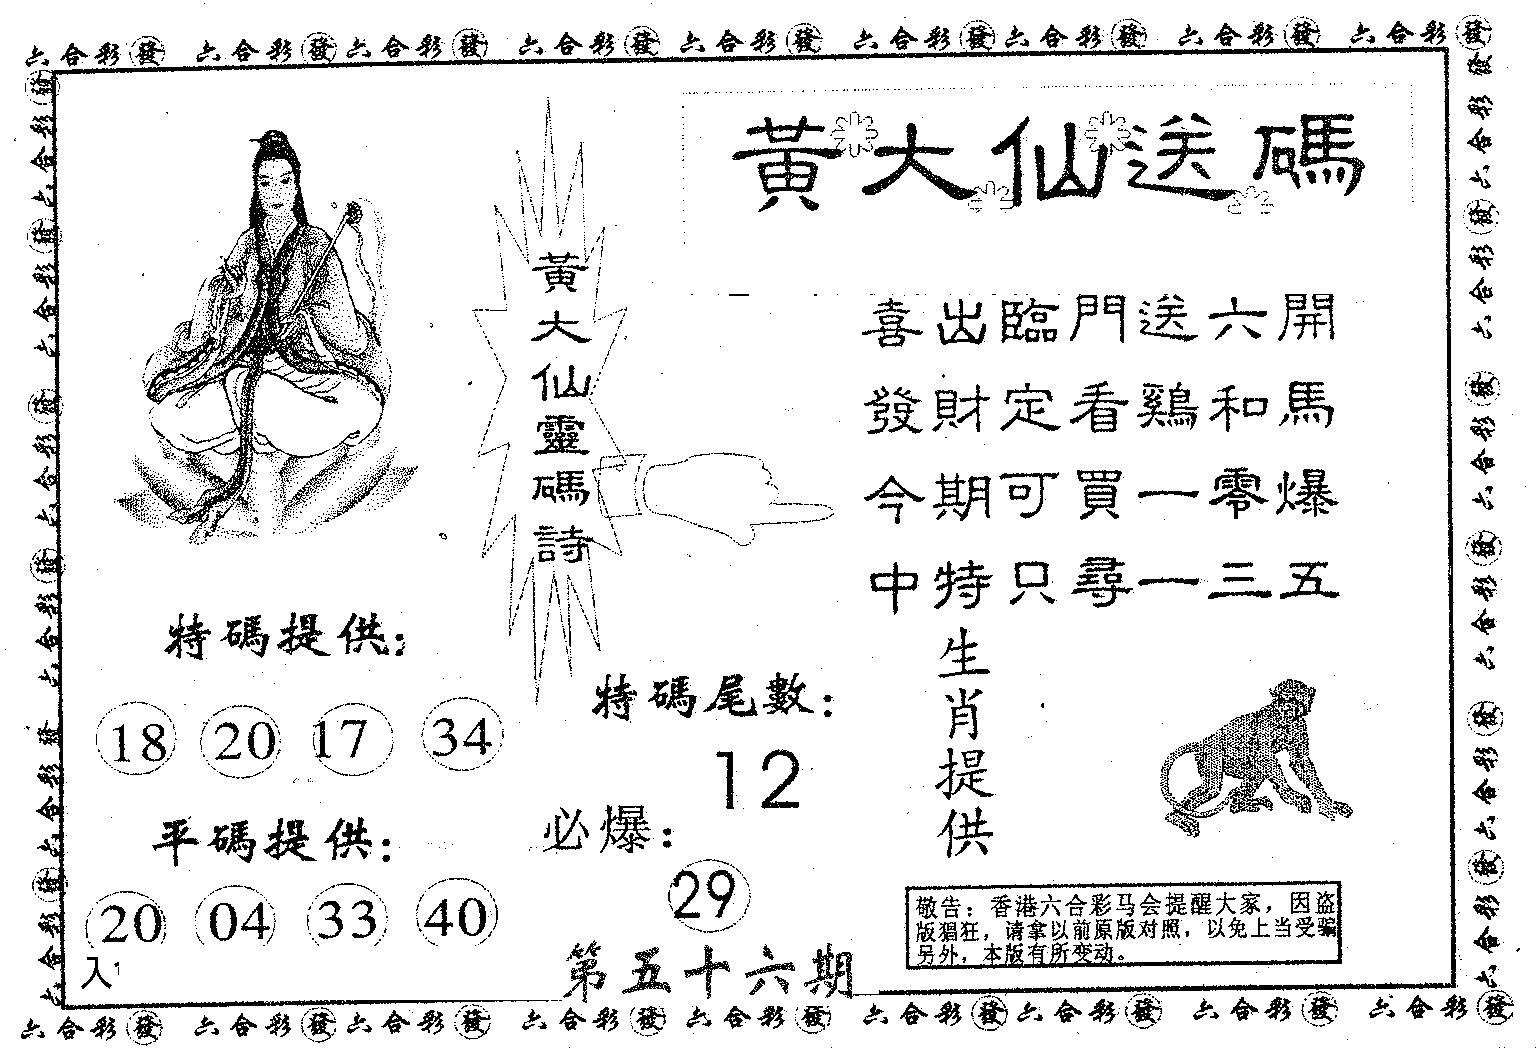 六合彩發 六合彩發 六合彩發 六合彩發 六合彩發 六合彩發 六合彩發 六合彩發 六合彩發
黃大仙送碼
黃大仙靈碼詩
喜出臨門送六開
發財定看鷄和馬
今期可買一零爆
中特只尋一三五
特碼提供:
18 20 17 34
平碼提供:
20 04 33 40
入
特碼尾數:
12
必爆:
29
第五十六期
生肖提供
敬告：香港六合彩马会提醒大家，因盗
版猖狂，请拿以前原版对照，以免上当受骗
另外，本版有所变动。
六合彩發 六合彩發 六合彩發 六合彩發 六合彩發 六合彩發 六合彩發 六合彩發 六合彩發